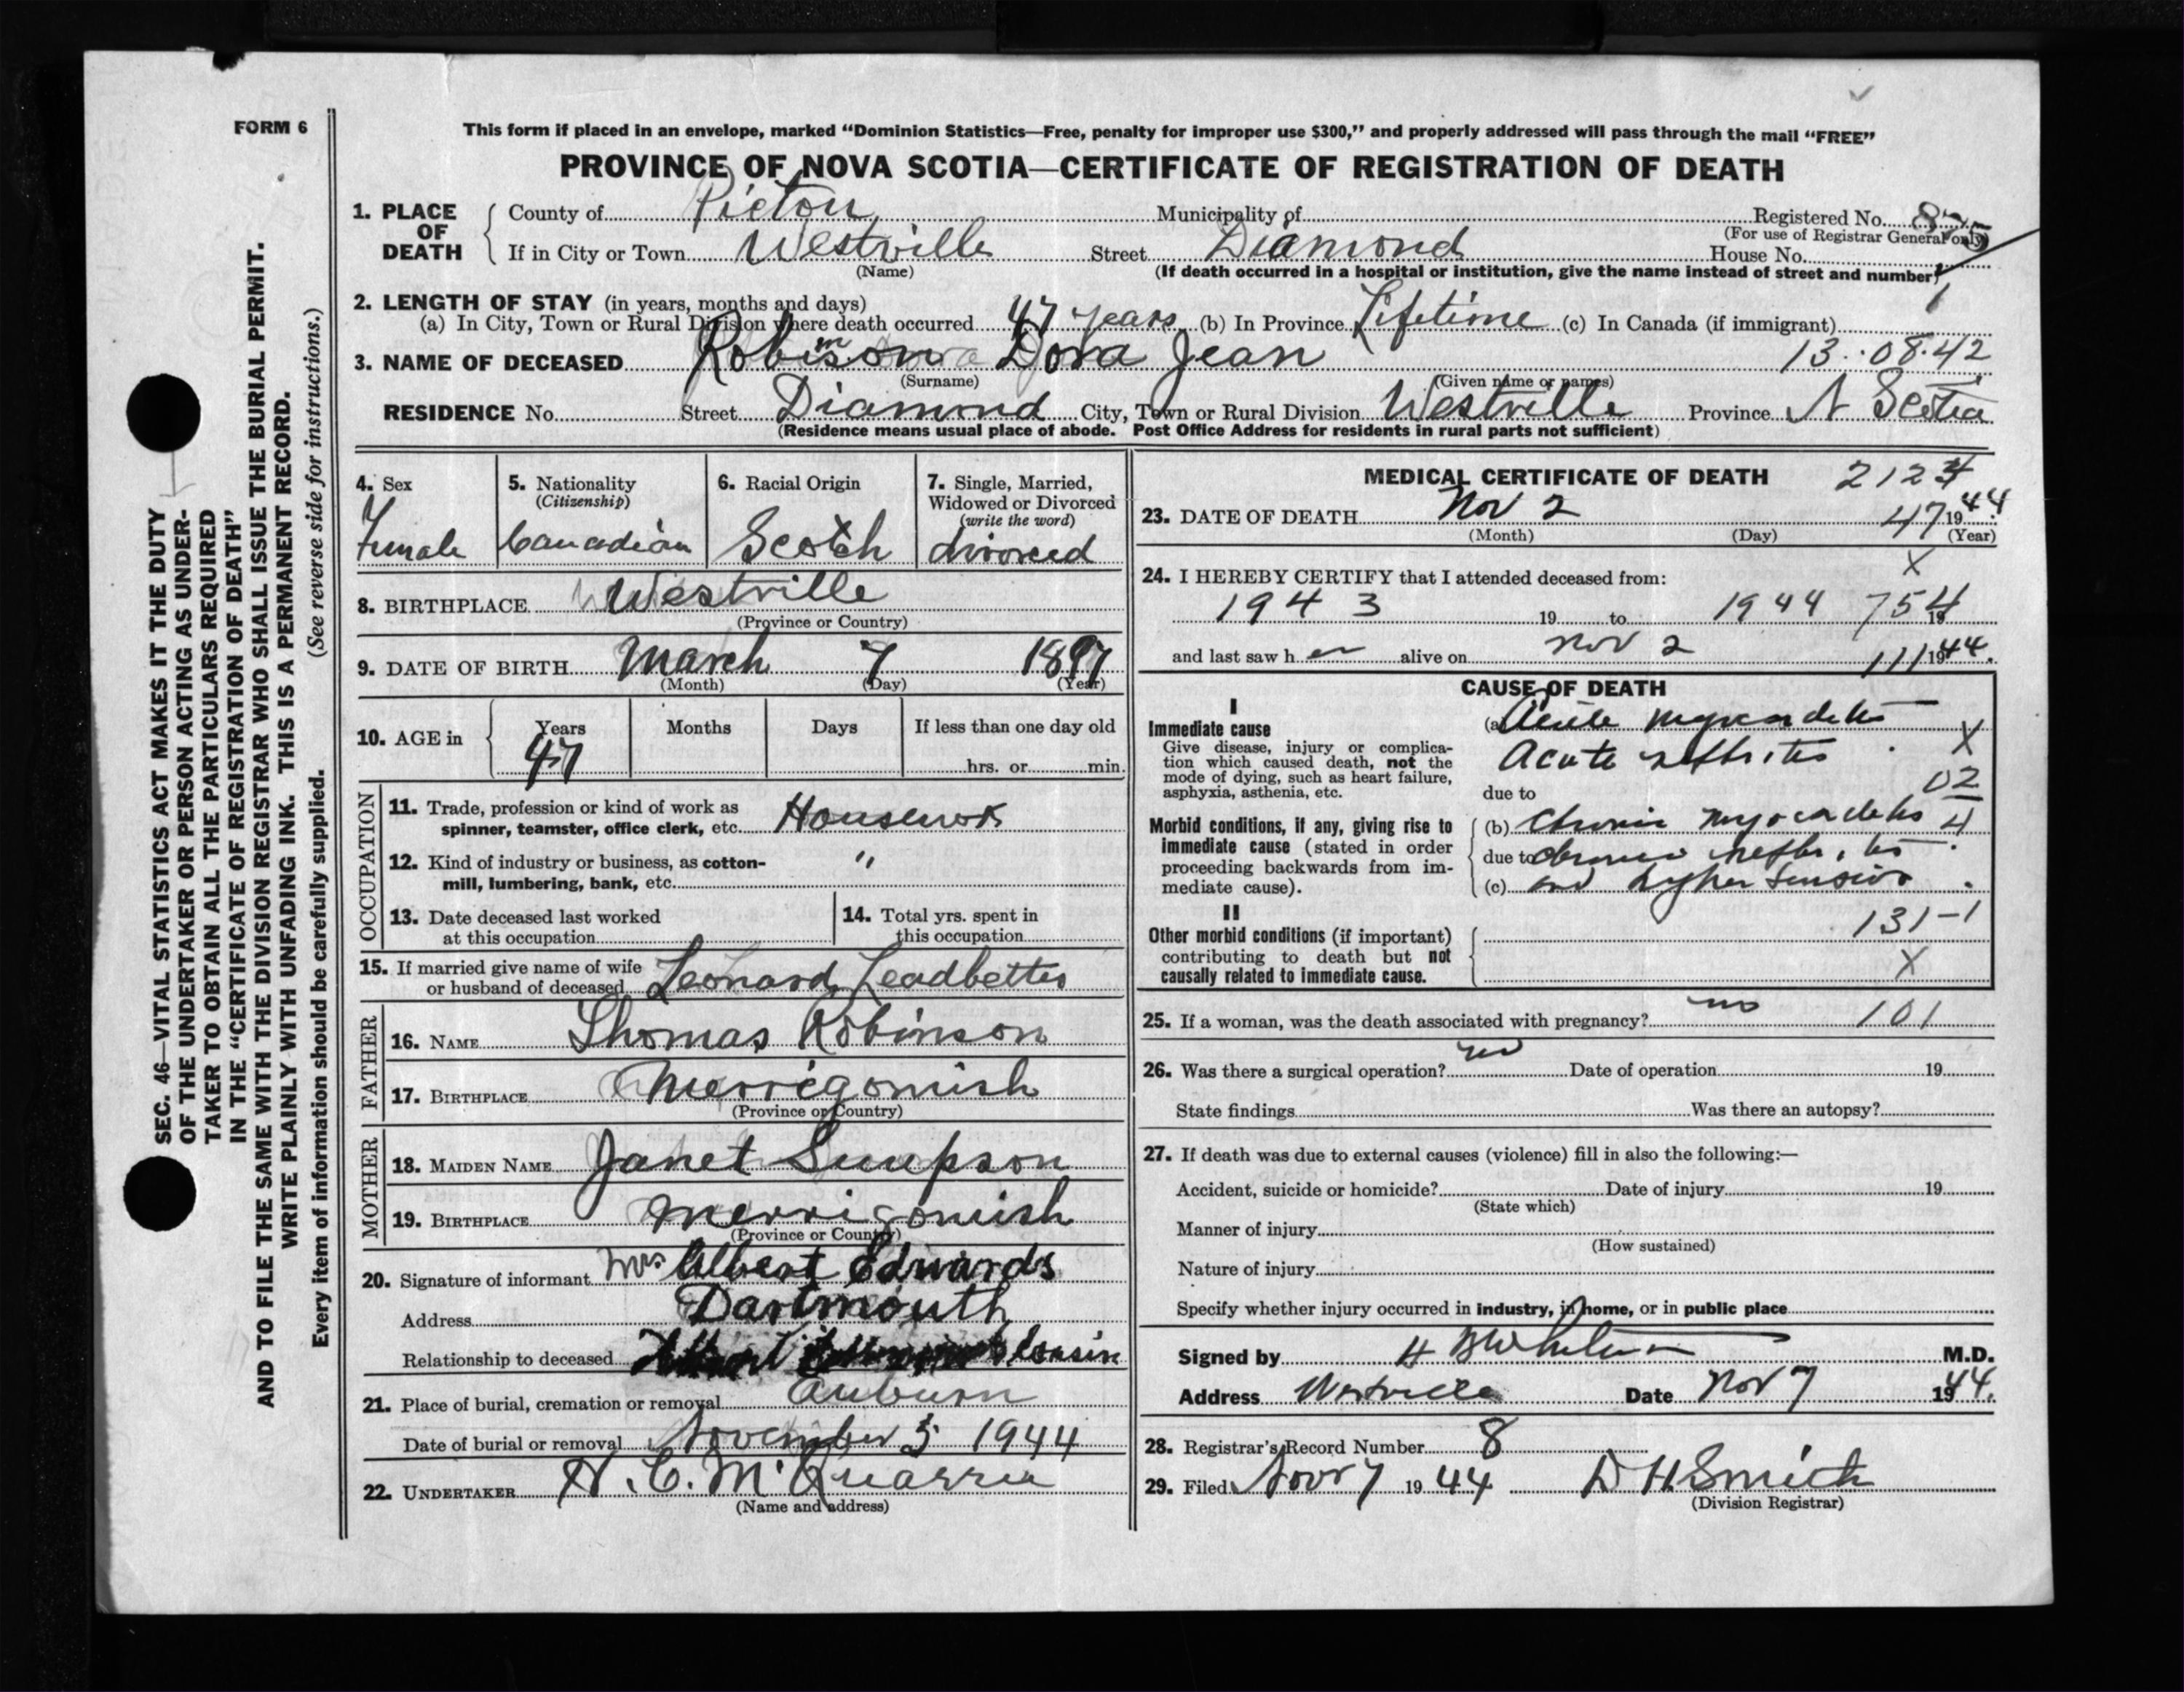 FORM 6
This form if placed in an envelope, marked “Dominion Statistics—Free, penalty for improper use $300,” and properly addressed will pass through the mail “FREE”
PROVINCE OF NOVA SCOTIA—CERTIFICATE OF REGISTRATION OF DEATH
1. PLACE OF DEATH
County of Pictou Municipality of Registered No. 875
(For use of Registrar General only)
If in City or Town Westville Street Diamond House No.
(Name)
(If death occurred in a hospital or institution, give the name instead of street and number)
2. LENGTH OF STAY (in years, months and days)
(a) In City, Town or Rural Division where death occurred 47 years (b) In Province Lifetime (c) In Canada (if immigrant)
3. NAME OF DECEASED Robinson Dora Jean 13. 08.42
(Surname) (Given name or names)
RESIDENCE No. Street Diamond City, Town or Rural Division Westville Province N Scotia
(Residence means usual place of abode. Post Office Address for residents in rural parts not sufficient)
4. Sex Female
5. Nationality (Citizenship) Canadian
6. Racial Origin Scotch
7. Single, Married, Widowed or Divorced (write the word) divorced
8. BIRTHPLACE Westville
(Province or Country)
9. DATE OF BIRTH March 7 1897
(Month) (Day) (Year)
10. AGE in Years 47 Months Days If less than one day old
hrs. or min.
OCCUPATION
11. Trade, profession or kind of work as
spinner, teamster, office clerk, etc. Housework
12. Kind of industry or business, as cotton-
mill, lumbering, bank, etc. "
13. Date deceased last worked
at this occupation
14. Total yrs. spent in
this occupation
15. If married give name of wife
or husband of deceased Leonard Leadbetter
FATHER
16. NAME Thomas Robinson
17. BIRTHPLACE Merrigomish
(Province or Country)
MOTHER
18. MAIDEN NAME Janet Simpson
19. BIRTHPLACE Merrigomish
(Province or Country)
20. Signature of informant Mrs Albert Edwards
Address Dartmouth
Relationship to deceased Cousin
21. Place of burial, cremation or removal Auburn
Date of burial or removal November 5 1944
22. UNDERTAKER H. C. McQuarrie
(Name and address)
MEDICAL CERTIFICATE OF DEATH 2123
23. DATE OF DEATH Nov 2 47 1944
(Month) (Day) (Year)
X
24. I HEREBY CERTIFY that I attended deceased from:
1943 19 to 1944 754 19
and last saw her alive on Nov 2 111 1944.
CAUSE OF DEATH
I
Immediate cause
Give disease, injury or complica-
tion which caused death, not the
mode of dying, such as heart failure,
asphyxia, asthenia, etc.
(a) Acute myocarditis
Acute nephritis X
due to 02
Morbid conditions, if any, giving rise to
immediate cause (stated in order
proceeding backwards from im-
mediate cause).
(b) Chronic myocarditis 4
due to chronic nephritis
(c) and hypertension
II
131-1
Other morbid conditions (if important)
contributing to death but not
causally related to immediate cause.
X
25. If a woman, was the death associated with pregnancy? no 101
26. Was there a surgical operation? Date of operation 19
State findings Was there an autopsy?
27. If death was due to external causes (violence) fill in also the following:—
Accident, suicide or homicide? Date of injury 19
(State which)
Manner of injury
(How sustained)
Nature of injury
Specify whether injury occurred in industry, in home, or in public place
Signed by M.D.
Address Westville Date Nov 7 1944.
28. Registrar's Record Number 8
29. Filed Nov 7 1944 D H Smith
(Division Registrar)
SEC. 46—VITAL STATISTICS ACT MAKES IT THE DUTY
OF THE UNDERTAKER OR PERSON ACTING AS UNDER-
TAKER TO OBTAIN ALL THE PARTICULARS REQUIRED
IN THE “CERTIFICATE OF REGISTRATION OF DEATH”
AND TO FILE THE SAME WITH THE DIVISION REGISTRAR WHO SHALL ISSUE THE BURIAL PERMIT.
WRITE PLAINLY WITH UNFADING INK. THIS IS A PERMANENT RECORD.
Every item of information should be carefully supplied. (See reverse side for instructions.)